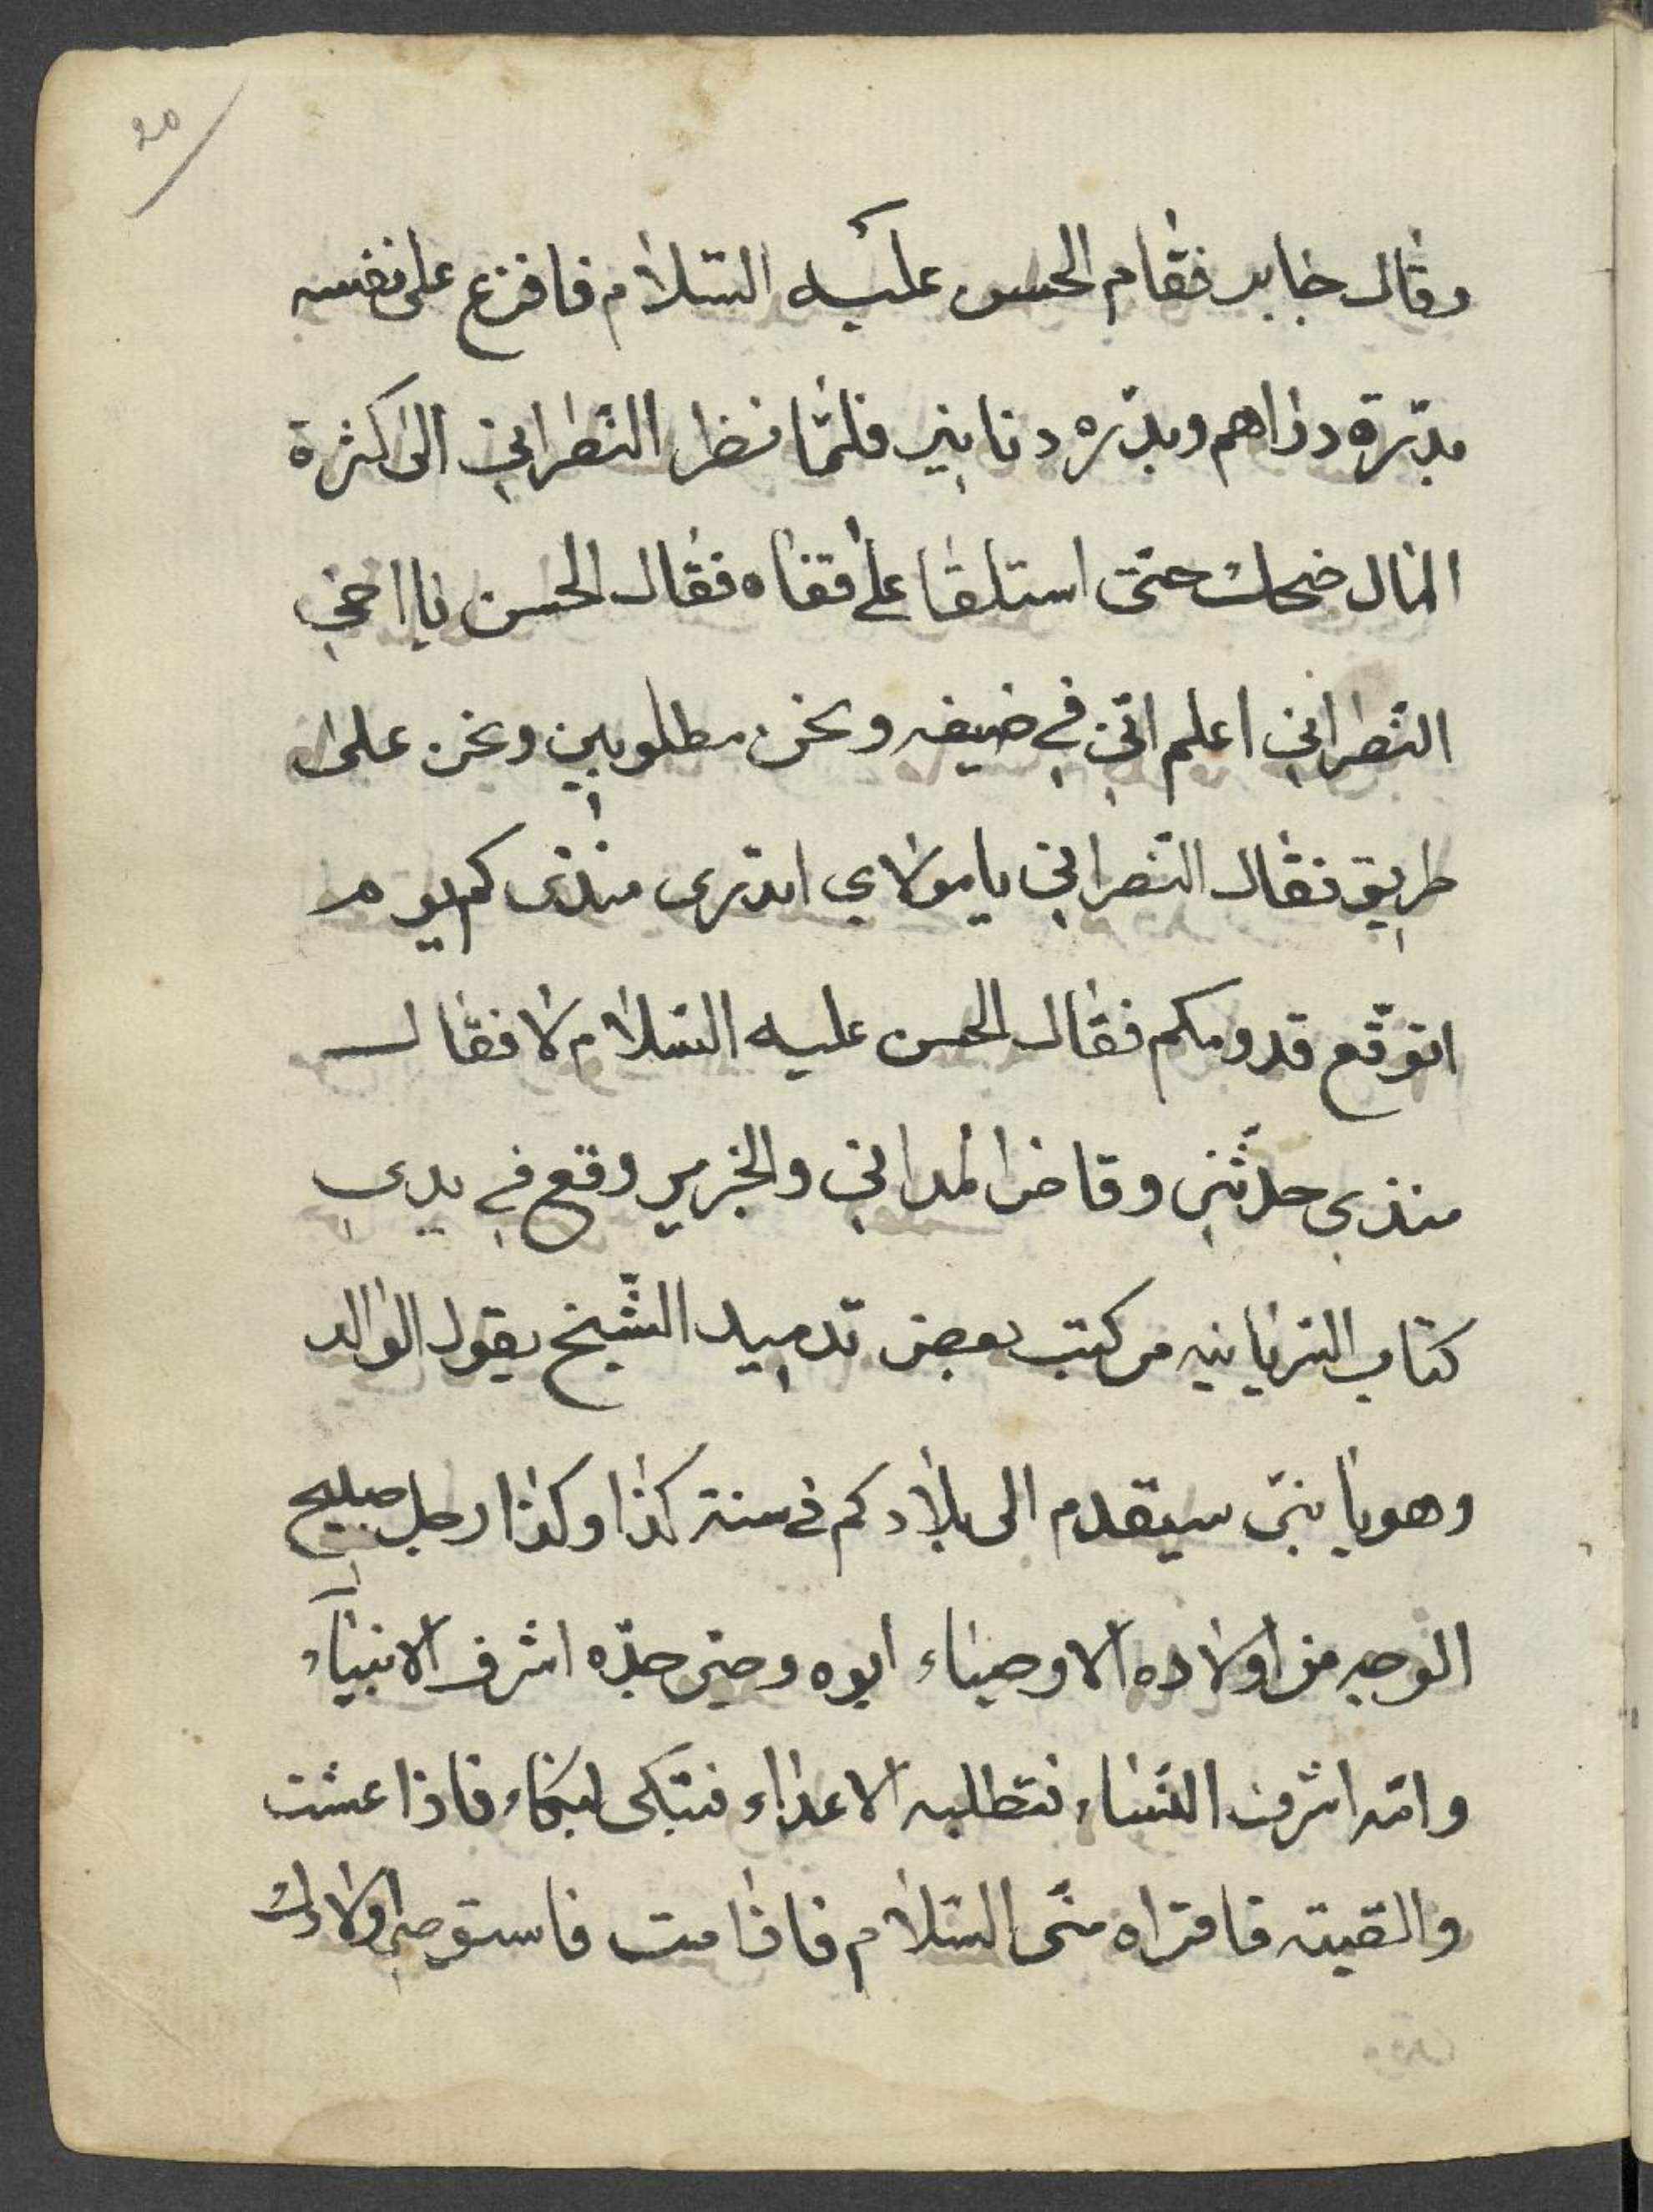 وقال جابر فقام الحسن عليه السّلام فافزع على نفسه
بدّرة دراهم وبدّره دنانير فلمّا نظر النّصراني الى كثرة
المال ضحك حتّى استلقا على قفاه فقال الحسن يا اخي
النّصراني اعلم انّي في ضيفه ونحن مطلوبين ونحن على
طريق فقال النّصراني يا مولاي اتدرى منذى كم يوم
اتوقّع قدومكم فقال الحسن عليه السّلام لا فقال
منذي حدّثني وقاضرا لمداني والخزمير وقع في يدي
كتاب السّريانيه من كتب بعض تدميد الشّيخ يقول الوالد
وهو يا بنىّ سيقدم الى بلادكم في سنة كذا وكذا رجل صليح
الوجه من اولاده الاوصياء ابوه وصيّ جدّه اشرف الانبيآء
وامّه اشرف النّساء فتطلبه الاعداء فتبكى لبكاء فاذا عشت
والقيته فاقراه منّى السّلام فاذا مت فاستوصى اولادك